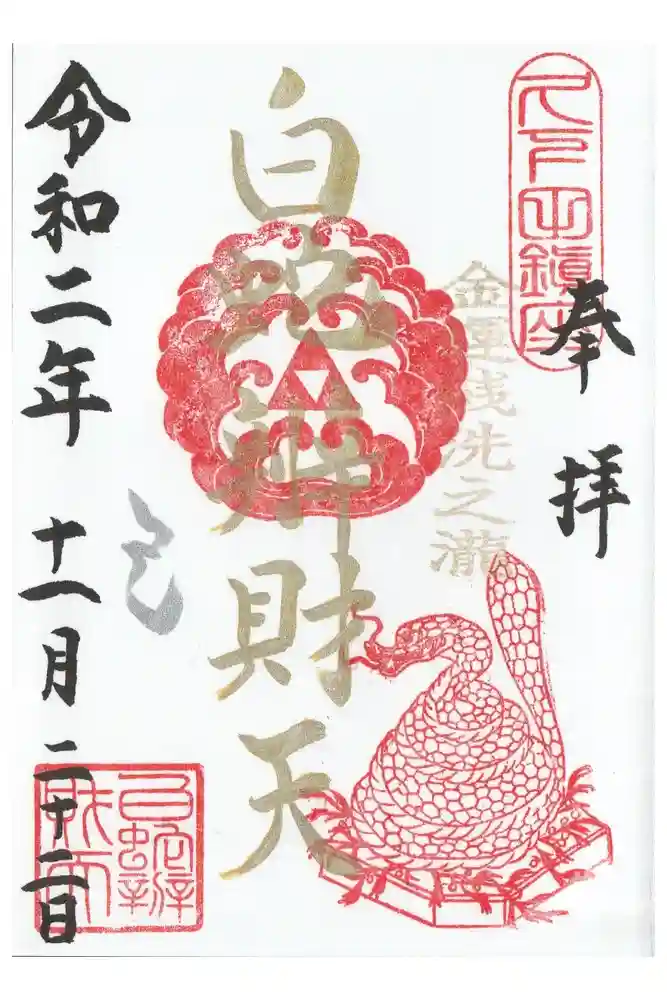 久下田鎮座
奉拝
金運銭洗之瀧
白蛇辨財天
巳
令和二年十一月二十二日
白蛇辨
財天